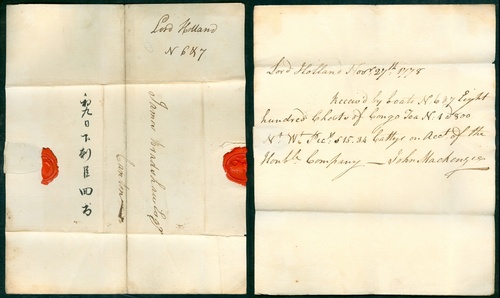 Lord Holland
N 6 & 7
James Bradshaw Esqr
Canton
初九日下刻呈回書
Lord Holland Novr 27th 1778
Received by Boats N 6 & 7 Eight
hundred Chests of Congo Tea N 1 @ 800
Nt Wt Pecls 515.34 Cattys on Acct of the
Honble Company — John Mackenzie